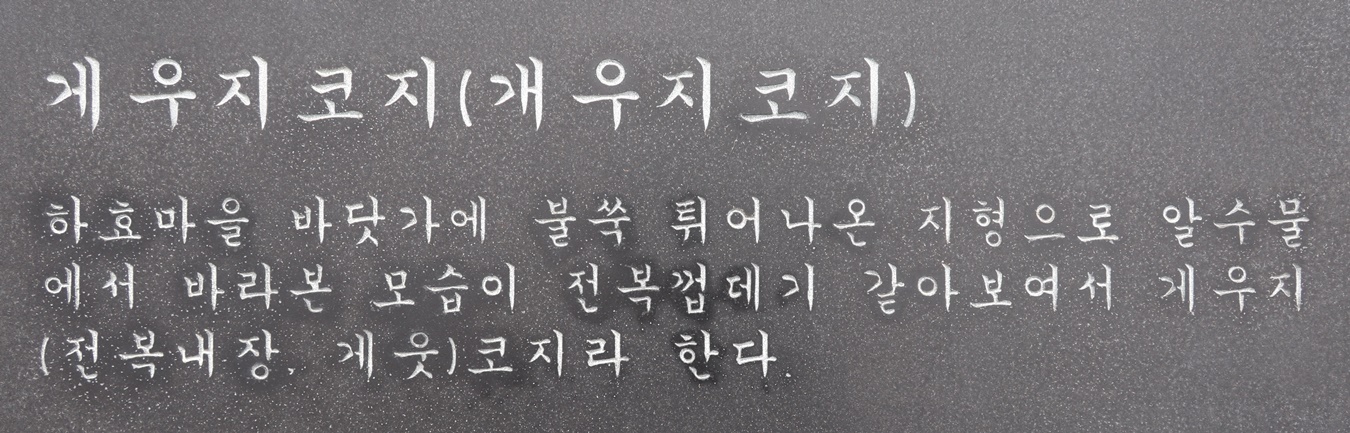 게우지코지(개우지코지)
하효마을 바닷가에 불쑥 튀어나온 지형으로 알수물
에서 바라본 모습이 전복껍데기 같아보여서 게우지
(전복내장. 게웃)코지라 한다.